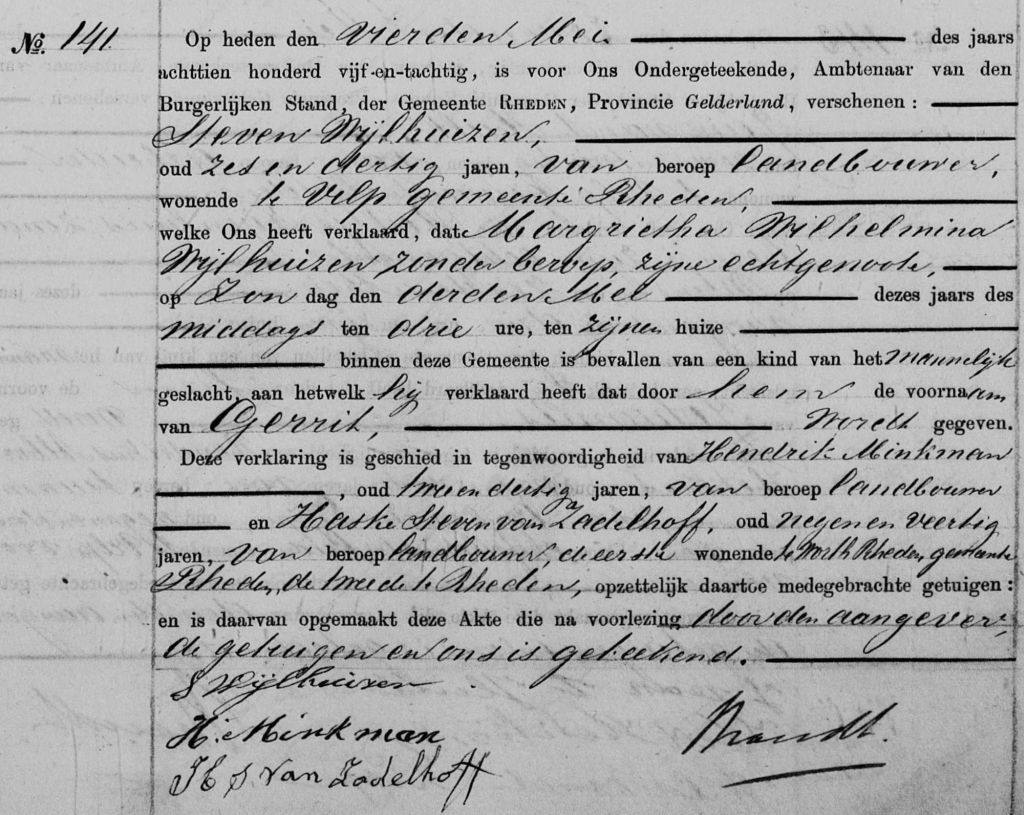 No. 141. Op heden den vierden Mei des jaars
achttien honderd vijf-en-tachtig, is voor Ons Ondergeteekende, Ambtenaar van den
Burgerlijken Stand, der Gemeente RHEDEN, Provincie Gelderland, verschenen:
Steven Wijlhuizen,
oud zes en dertig jaren, van beroep landbouwer,
wonende te Velp gemeente Rheden,
welke Ons heeft verklaard, dat Margrietha Wilhelmina
Wijlhuizen zonder beroep, zijne echtgenoote,
op Zon dag den derden Mei dezes jaars des
middags ten drie ure, ten zijnen huize
binnen deze Gemeente is bevallen van een kind van het mannelijk
geslacht, aan hetwelk hij verklaard heeft dat door hem de voornaam
van Gerrit, wordt gegeven.
Deze verklaring is geschied in tegenwoordigheid van Hendrik Minkman
, oud twee en dertig jaren, van beroep landbouwer
en Steven van Zadelhoff, oud negen en veertig
jaren, van beroep landbouwer, de eerste wonende te Worth Rheden, gemeente
Rheden, de tweede te Rheden, opzettelijk daartoe medegebrachte getuigen:
en is daarvan opgemaakt deze Akte die na voorlezing door den aangever,
de getuigen en ons is geteekend.
S Wijlhuizen
H. Minkman
S. van Zadelhoff
Brandt.